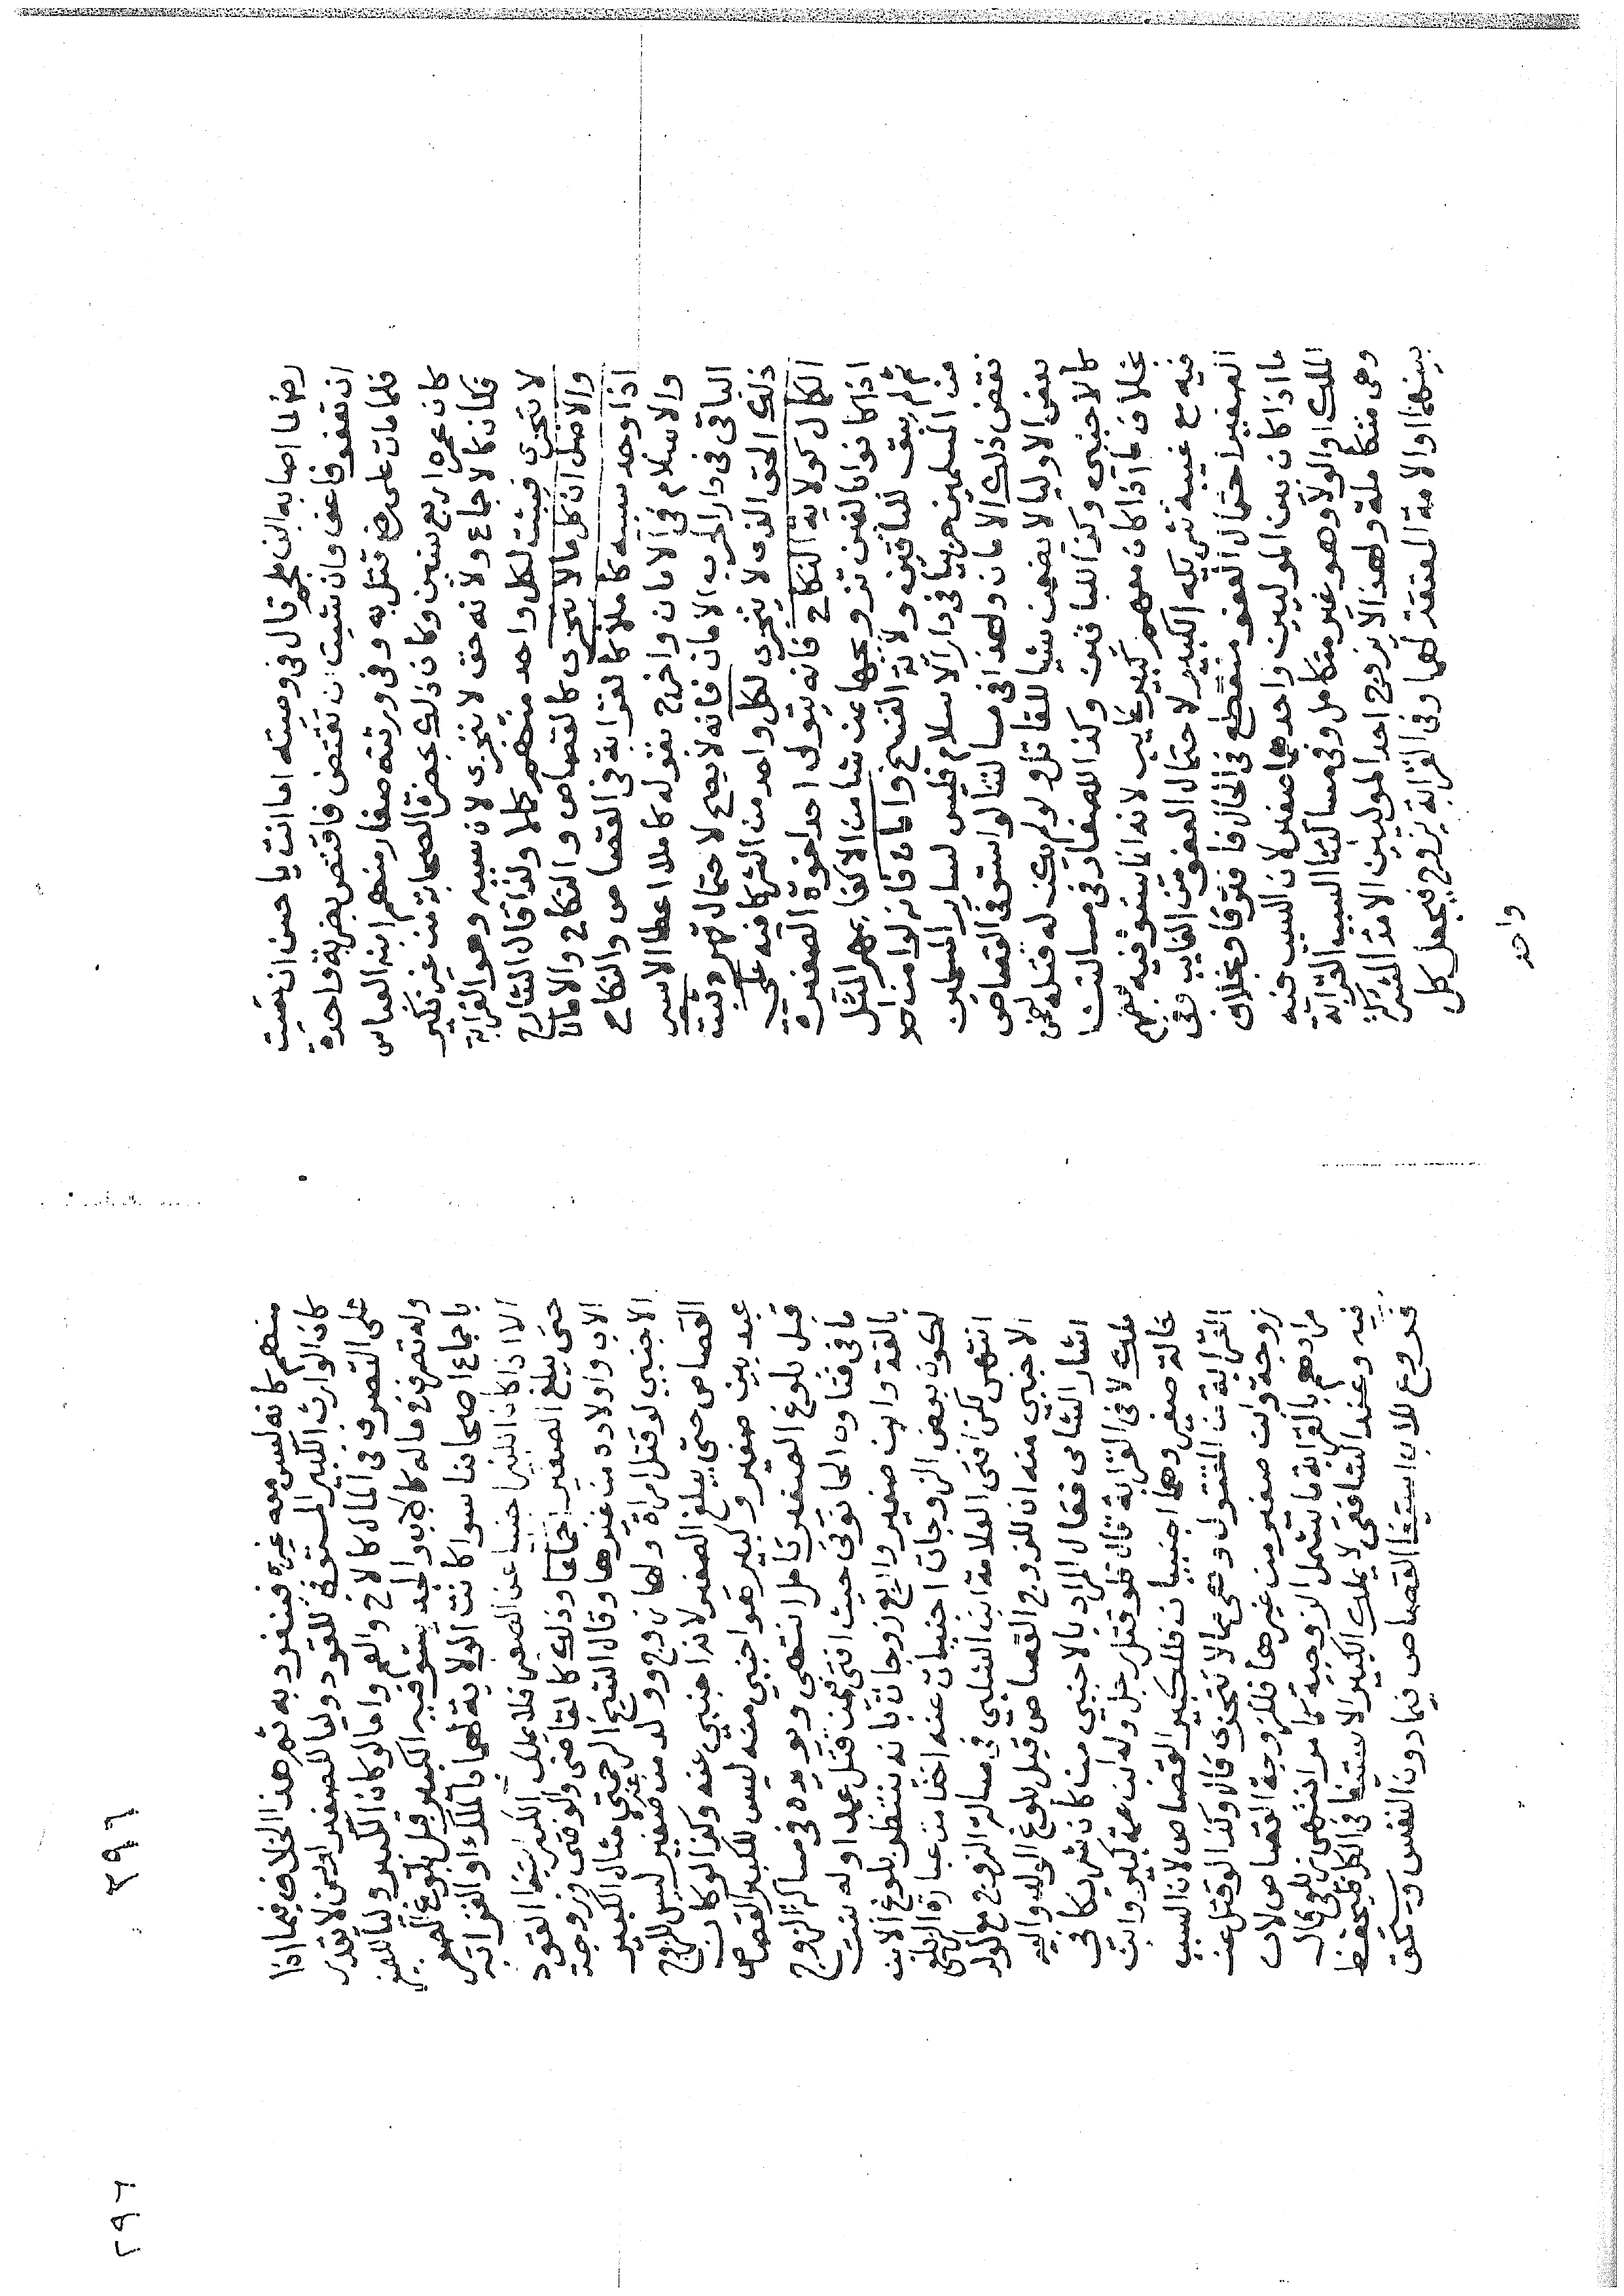 رضي لما اصابه ابن ملجم قال في وصيته اما انت يا حسن ان شيت
ان تعفو فاعف وان شيت ان تقتص فاقتص بضربة واحدة
فلما مات علي رضي قتل به وفي ورثته صغار منهم ابنه العباس
كان عمره اربع سنين وكان ذلك بمحضر الصحابة من غير نكير
فكان كالاجماع ولانه حق لا يتجزى لان سببه وهو القرابة
لا تتجزى فيثبت لكل واحد منهم كملا ولذا قال الشارح
والاصل ان كل ما لا يتجزى كالقصاص والنكاح والامان
اذا وجد سببه كاملا كالقرابة في القصاص والنكاح
والاسلام في الامان واخرج بقوله كاملا اعطا الاسير
الباقي في دار الحرب الامان فانه لا يصح لاحتمال قهره يثبت
ذلك الحق الذي لا يتجزى لكل واحد من الشركا فيه على
الكمال كولاية النكاح فانه يتولى احد اخوة الصغيرة
اذا كانوا بالغين تزويجها ممن شا من الاكفا بمهر المثل
ثم لم يبق للباقين ولاية الفسخ والامان فانه لو امن احد
من المسلمين حربيا في دار الاسلام فليس لساير المسلمين
نقض ذلك الامان ولهذا في مسالتنا لو استوفى القصاص
بعض الاوليا لا يضمن شيا للقاتل ولو لم يكن له قتله ضمن
كالاجنبي وكذا للباقين وكذا للصغار في مسالتنا
بخلاف ما اذا كان معهم كبير غايب لانه انما يستوفيه بعضهم
فيه مع غيبة شريكه الكبير لاحتمال العفو من الغايب وفي
الصغير احتمال العفو منقطع في الحال فافترقا وبخلاف
ما اذا كان بين الموليين واحدهما صغير لان السبب فيه
الملك او الولا وهو غير متكامل وفي مسالتنا السبب القرابة
وهي متكاملة ولهذا لا يزوج احد الموليين الامة المشتركة
بينهما او الامة المعتقة لهما وفي القرابة يزوج فيجعل كل
واحد
٢٩٦
٢٩٦
منهم كانه ليس معه غيره فينفرد به ثم هذا الخلاف فيما اذا
كان الوارث الكبير المستوفي للقود وليا للصغير اوليا لا يقدر
على التصرف في المال كالاخ والعم واما لو كان الكبير وليا للصغير
وله تصرف في ماله كالاب والجد يستوفيه الكبير قبل بلوغ الصغير
باجماع اصحابنا سوا كانت الولاية لهما بالملك او القرابة
الا اذا كان الكبير اجنبيا عن الصغير فلا يملك الكبير استيفا القود
حتى يبلغ الصغير اجماعا وذلك كالقاضي والوصي وزوجة
الاب واولاده من غيرها وقال الشيخ الرحمتي مثال الكبير
الاجنبي لو قتل امراة ولها زوج وولد من غيره صغير ليس للزوج
القصاص حتى يبلغ الصغير لانه اجنبي عنه وكذا لو كان
عبد بين صغير وكبير هو اجنبي منه ليس للكبير القصاص
قبل بلوغ الصغير تامل انتهى ويويده في مسالة الزوج
ما في فتاوى الحانوتي حيث افتى فيمن قتل عمدا وله بنت
بالغة وابن صغير واربع زوجات بانه ينتظر بلوغ الابن
لكون بعض الزوجات اجنبيات عنه اخذا من عبارة الزيلعي
انتهى لكن افتى العلامة ابن الشلبي في مسالة الزوج مع الولد
الاجنبي منه ان للزوج القصاص قبل بلوغ الولد واليه
اشار الشامي فقال المراد بالاجنبي من كان شريكا في
الملك لا في القرابة قال فلو قتل رجل وله ابن عمة كبير وابن
خالة صغير وهما اجنبيان فللكبير القصاص لان السبب
القرابة من المقتول وهي مما لا تتجزى قال وكذا لو قتل عن
زوجة وابن صغير من غيرها فللزوجة القصاص لان
مرادهم بالقرابة ما يشمل الزوجية كما مر انتهى زيلعي قال
فيه وعند الشافعي لا يملك الكبير الاستيفا في الكل فليحفظ
فروع للاب استيفا القصاص فيما دون النفس ويستحق